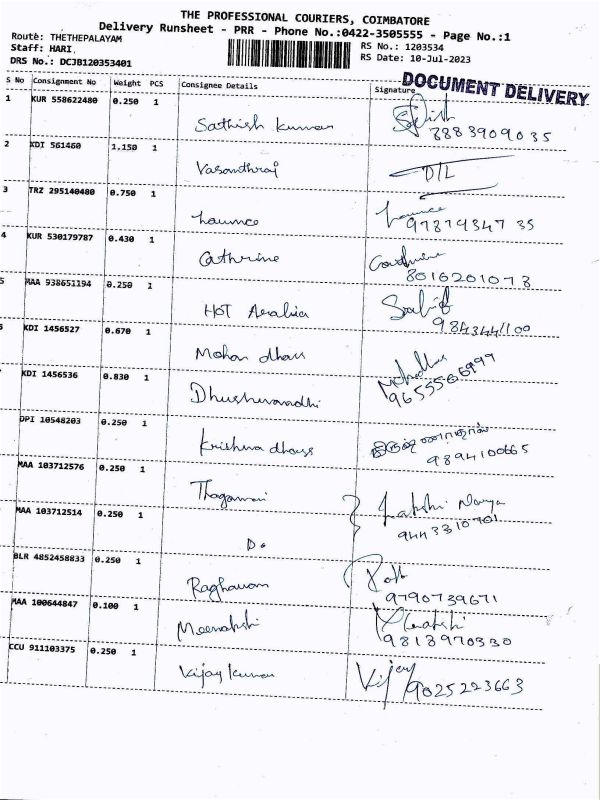 THE PROFESSIONAL COURIERS, COIMBATORE
Delivery Runsheet - PRR - Phone No.:0422-3505555 - Page No.:1
Route: THETHEPALAYAM
Staff: HARI.
DRS No.: DCJB120353401
RS No.: 1203534
RS Date: 10-Jul-2023
DOCUMENT DELIVERY
S No Consignment No Weight PCS Consignee Details Signature
1 KUR 558622480 0.250 1 Sathish kumar
8883909035
2 KDI 561460 1.150 1 Vasanthraj D/L
3 TRZ 295140480 0.750 1
4 KUR 530179787 0.430 1 Cathrine
8016201073
5 MAA 938651194 0.250 1 HOT Arabia
KDI 1456527 0.670 1 Mohan dhass
KDI 1456536 0.830 1
DPI 10548203 0.250 1 Krishna dhass
9894100665
MAA 103712576 0.250 1
MAA 103712514 0.250 1 Do
9443310701
BLR 4852458833 0.250 1 Raghavan
9790739671
MAA 100644847 0.100 1 Meenakshi
9813970330
CCU 911103375 0.250 1 Vijay kumar Vijay
9025223663